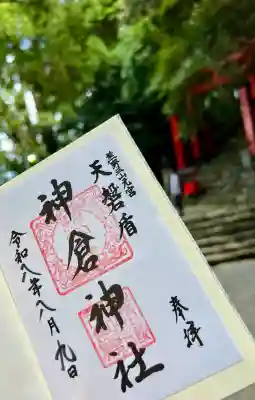 奉拝
熊野三山元宮
天磐盾
神倉神社
令和八年八月九日